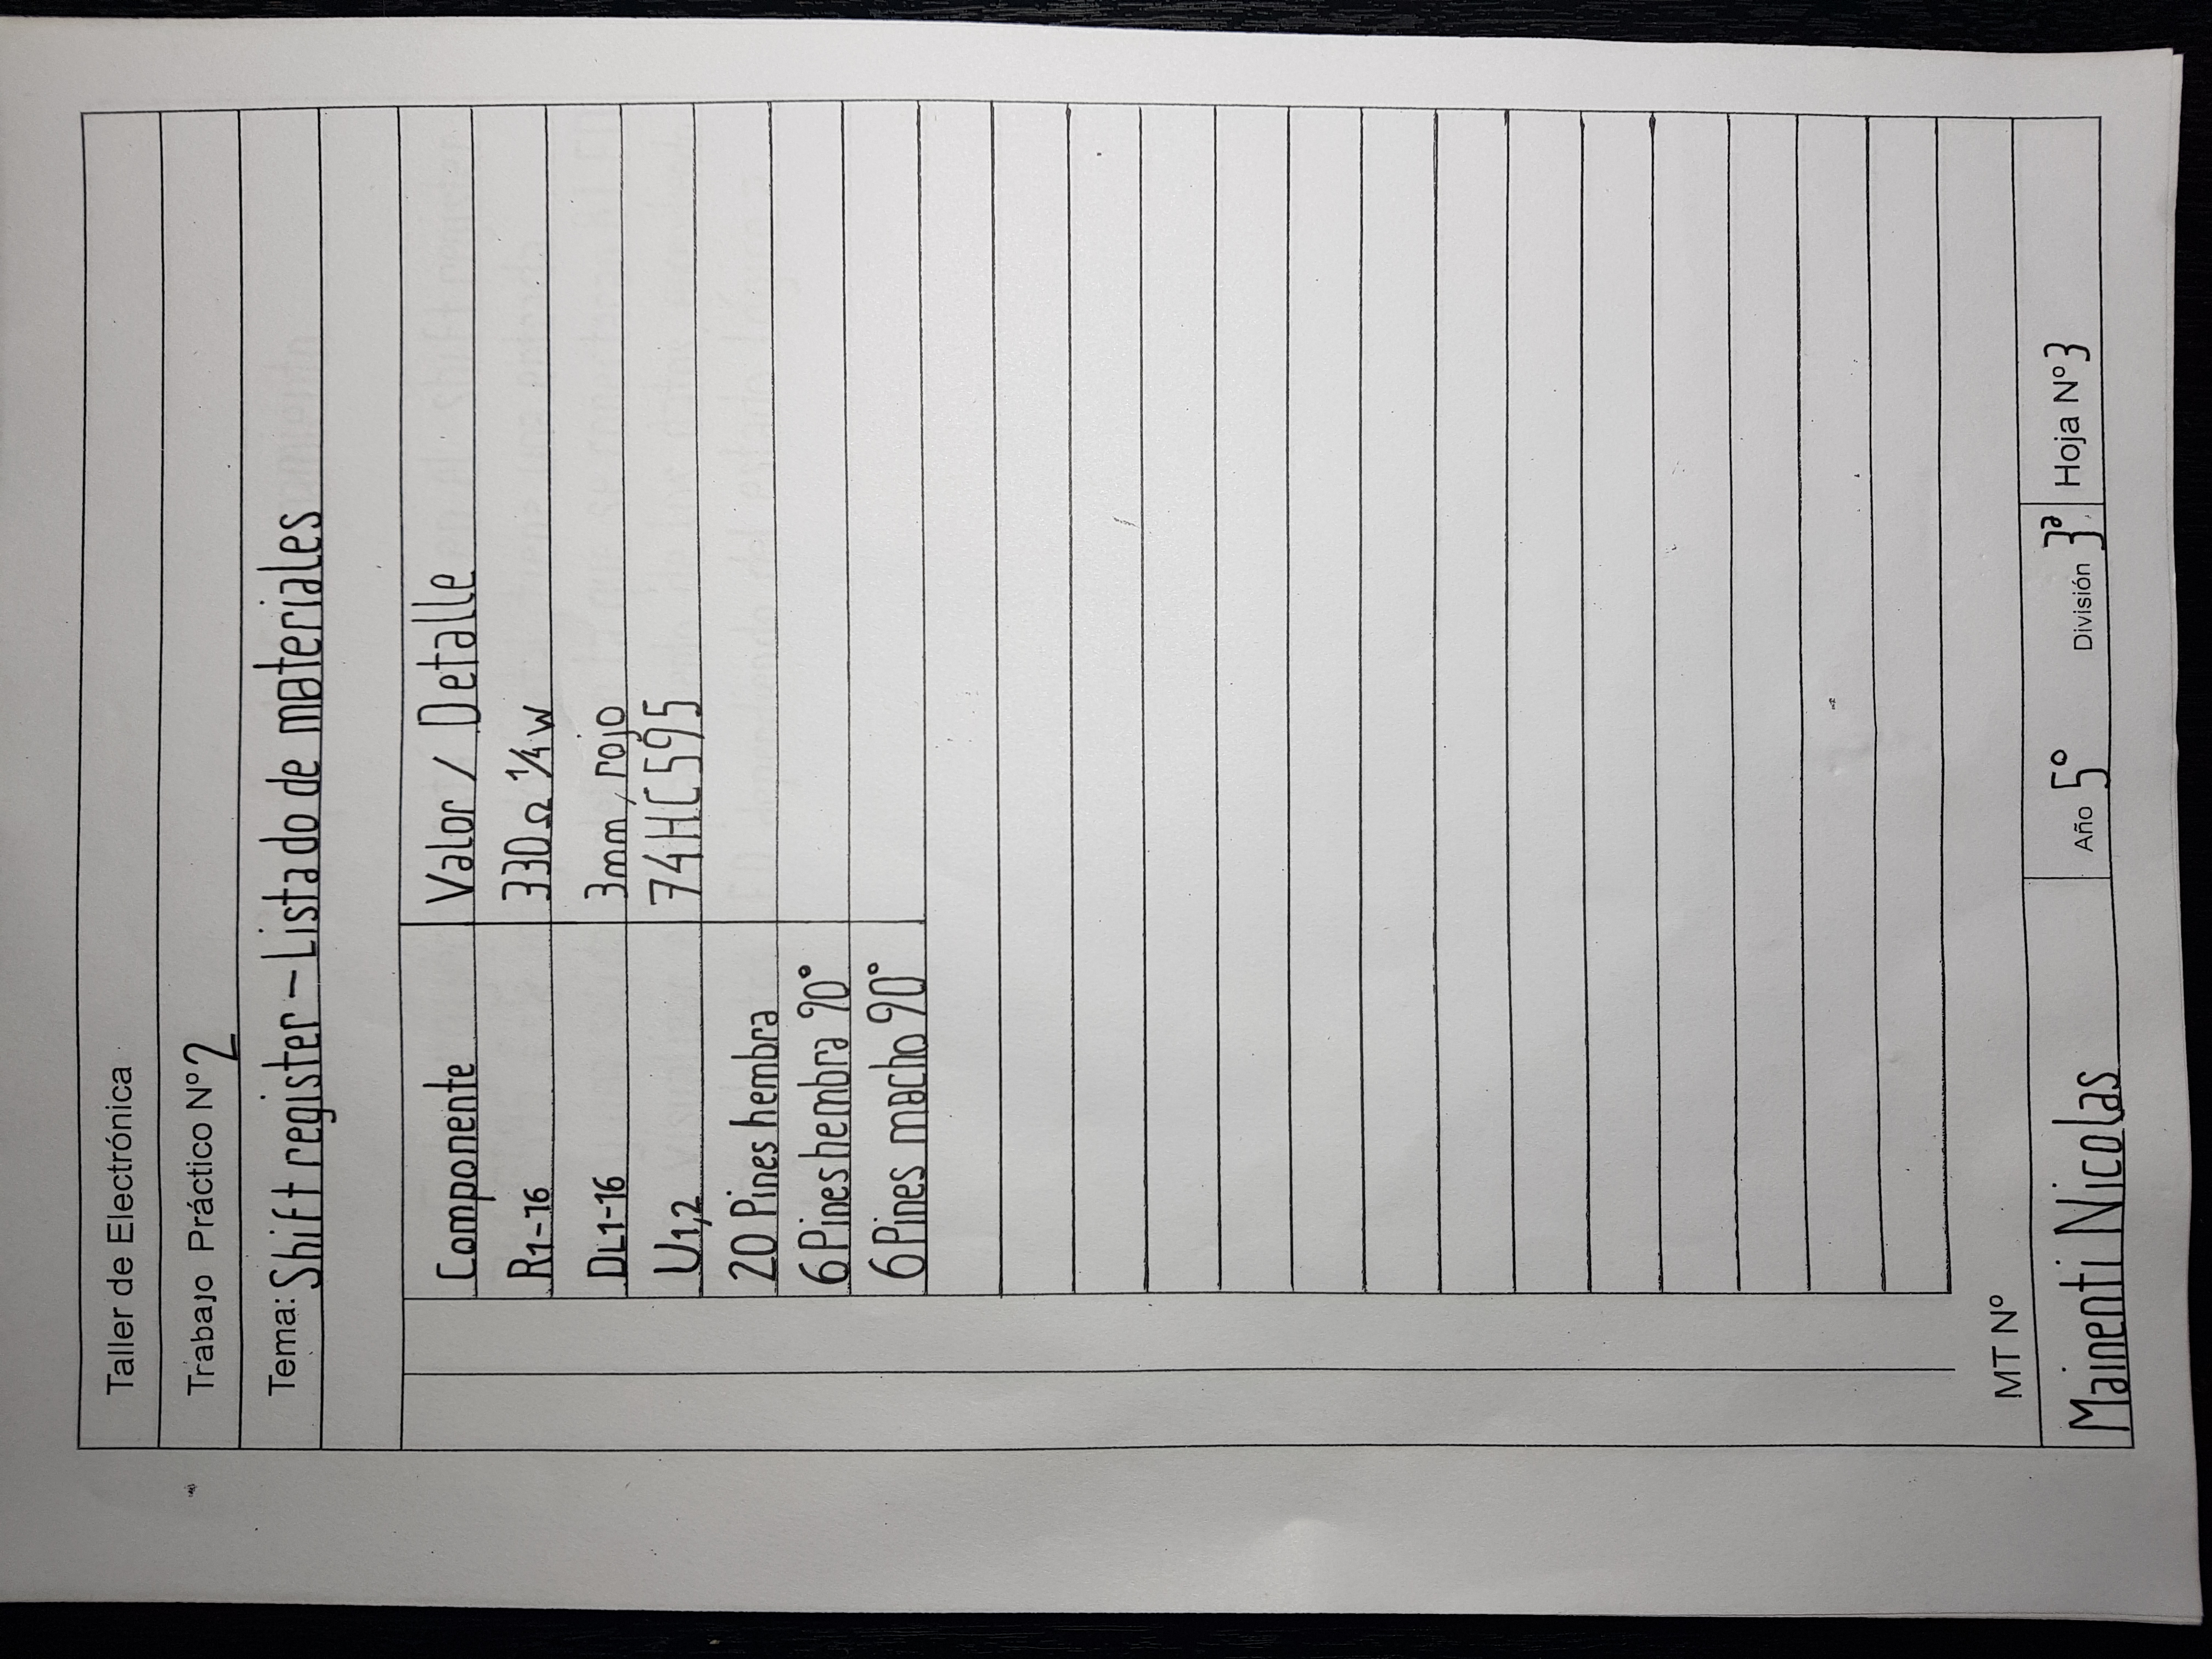 Taller de Electrónica
Trabajo Práctico Nº 2
Tema: Shift register - Listado de materiales
Componente Valor / Detalle
R1-16 330Ω 1/4 W
DL1-16 3mm, rojo
U1,2 74HC595
20 Pines hembra
6 Pines hembra 90°
6 Pines macho 90°
MT Nº
Mainenti Nicolas Año 5º División 3ª Hoja Nº 3